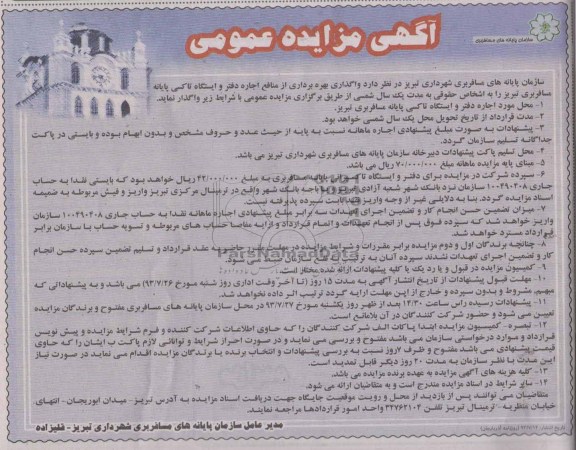 سازمان پایانه های مسافربری
آگهی مزایده عمومی
سازمان پایانه های مسافربری شهرداری تبریز در نظر دارد واگذاری بهره برداری از منافع اجاره دفتر و ایستگاه تاکسی پایانه
مسافربری تبریز را به اشخاص حقوقی به مدت یک سال شمسی از طریق برگزاری مزایده عمومی با شرایط زیر واگذار نماید.
۱- محل مورد اجاره دفتر و ایستگاه تاکسی پایانه مسافربری تبریز.
۲- مدت قرارداد از تاریخ تحویل محل یک سال شمسی خواهد بود.
۳- پیشنهادات به صورت مبلغ پیشنهادی اجاره ماهانه نسبت به پایه از حیث عدد و حروف مشخص و بدون ابهام بوده و بایستی در پاکت
جداگانه تسلیم سازمان گردد.
۴- محل تسلیم پاکت پیشنهادات دبیرخانه سازمان پایانه های مسافربری شهرداری تبریز می باشد.
۵- مبنای پایه مزایده ماهانه مبلغ ۷۰/۰۰۰/۰۰۰ ریال می باشد.
۶- سپرده شرکت در مزایده برای دفتر و ایستگاه تاکسی پایانه مسافربری به مبلغ ۴۲/۰۰۰/۰۰۰ ریال خواهد بود که بایستی نقدا به حساب
جاری ۱۰۰۴۹۰۴۰۸ سازمان نزد بانک شهر شعبه آزادی تبریز یا باجه بانک شهر واقع در ترمینال مرکزی تبریز واریز و فیش مربوطه به ضمیمه
اسناد مزایده گردد. بنا به دلایلی غیر از وجه واریز ضمانت سپرده پذیرفته نیست.
۷- میزان تضمین حسن انجام کار و تضمین اجرای تعهدات سه برابر مبلغ پیشنهادی اجاره ماهانه نقدا به حساب جاری ۱۰۰۴۹۰۴۰۸ سازمان
واریز خواهد شد که سپرده فوق پس از انجام تعهدات و اتمام قرارداد و ارایه مفاصا حساب های مربوطه و تسویه حساب با سازمان برابر
قرارداد مسترد خواهد شد.
۸- چنانچه برندگان اول و دوم مزایده برابر مقررات و شرایط مزایده در مهلت مقرر حاضر به عقد قرارداد و تسلیم تضمین سپرده حسن انجام
کار و تضمین اجرای تعهدات نشدند سپرده آنان به ترتیب به نفع سازمان ضبط می شود.
۹- کمیسیون مزایده در قبول و یا رد یک یا کلیه پیشنهادات ارائه شده مختار است.
۱۰- مهلت قبول پیشنهادات از تاریخ انتشار آگهی به مدت ۱۵ روز (تا آخر وقت اداری روز شنبه مورخ ۹۳/۷/۲۶) می باشد و به پیشنهاداتی که
مبهم، مشروط و بدون سپرده و خارج از این مهلت ارایه گردد ترتیب اثر داده نخواهد شد.
۱۱- پیشنهادات رسیده راس ساعت ۱۲/۳۰ بعد از ظهر روز یکشنبه مورخ ۹۳/۷/۲۷ در محل سازمان پایانه های مسافربری مفتوح و برندگان مزایده
تعیین می شود و حضور شرکت کنندگان در آن بلامانع است.
۱۲- تبصره - کمیسیون مزایده ابتدا پاکات الف شرکت کنندگان را که حاوی اطلاعات شرکت کننده و فرم شرایط مزایده و پیش نویس
قرارداد و موارد درخواستی سازمان می باشد مفتوح و بررسی می نماید و در صورت احراز شرایط و توانائی لازم پاکت ب ایشان را که حاوی
قیمت پیشنهادی می باشد مفتوح و ظرف ۷ روز نسبت به بررسی پیشنهادات و انتخاب برنده یا برندگان مزایده اقدام می نماید در صورت نیاز
این مدت با نظر سازمان به مدت ۲۰ روز دیگر قابل تمدید است.
۱۳- کلیه هزینه های آگهی مزایده به عهده برنده مزایده می باشد.
۱۴- سایر شرایط در اسناد مزایده مندرج است و به متقاضیان ارائه می شود.
متقاضیان می توانند، پس از بازدید از محل و رویت موقعیت جایگاه جهت دریافت اسناد مزایده به آدرس تبریز- میدان ابوریحان- انتهای
خیابان منظریه - ترمینال تبریز تلفن ۳۴۷۶۲۱۰۲ واحد امور قراردادها مراجعه نمایند.
مدیر عامل سازمان پایانه های مسافربری شهرداری تبریز- قلیزاده
ParsNamadData